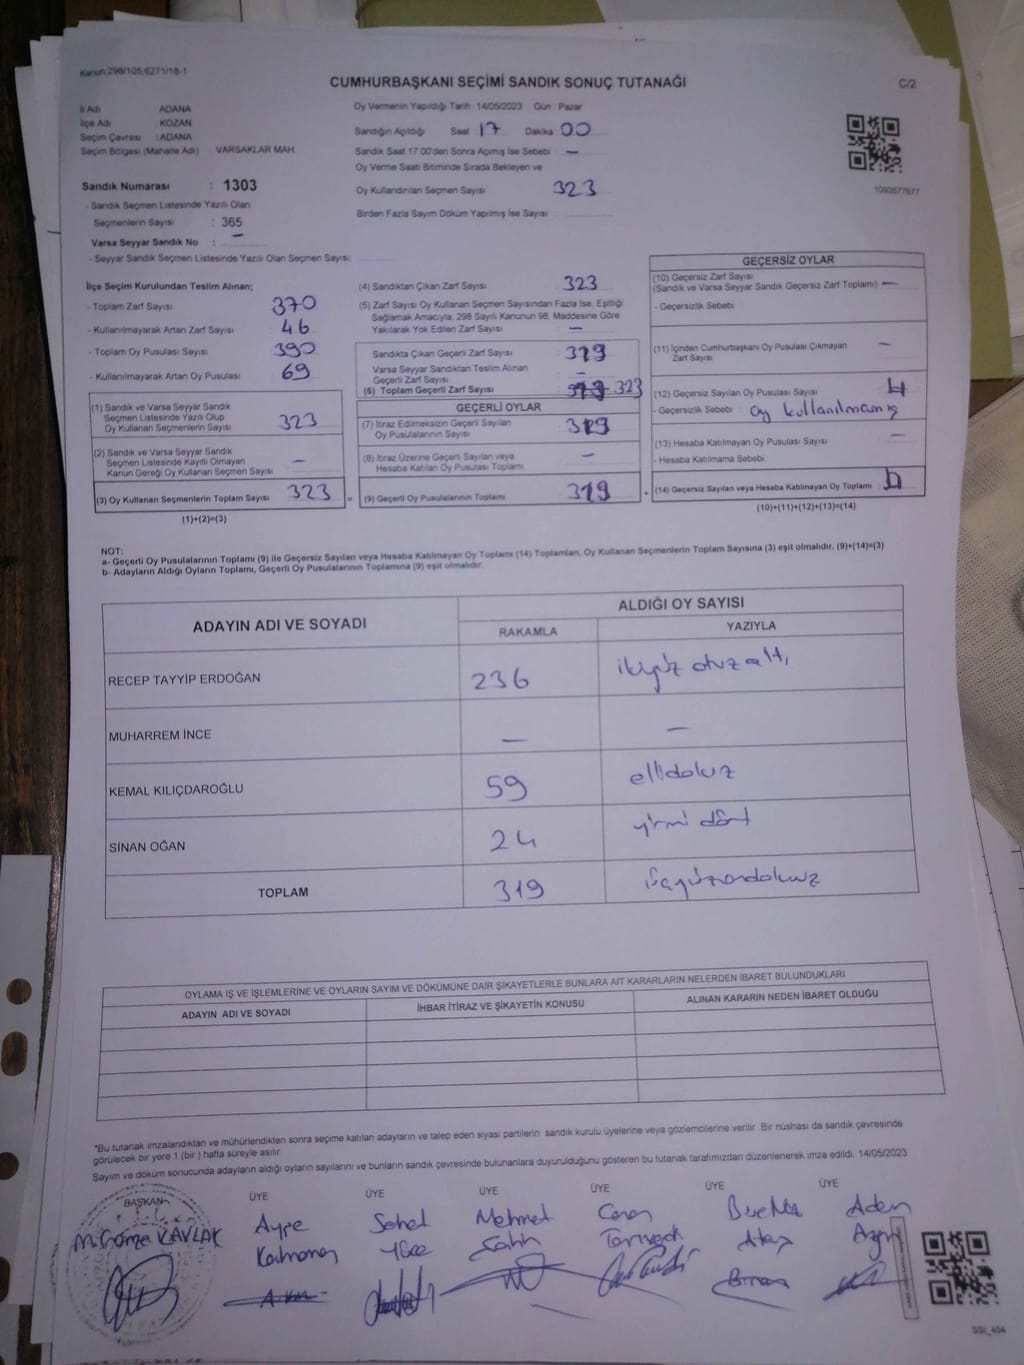 Kanun:298/105;6271/18-1
CUMHURBAŞKANI SEÇİMİ SANDIK SONUÇ TUTANAĞI
C/2
İl Adı ADANA
İlçe Adı KOZAN
Seçim Çevresi : ADANA
Seçim Bölgesi (Mahalle Adı) VARSAKLAR MAH.
Oy Vermenin Yapıldığı Tarih :14/05/2023 Gün : Pazar
Sandığın Açıldığı Saat 17 Dakika 00
Sandık Saat 17:00'den Sonra Açımış İse Sebebi —
Oy Verme Saati Bitiminde Sırada Bekleyen ve
Oy Kullandırılan Seçmen Sayısı 323
Birden Fazla Sayım Döküm Yapılmış İse Sayısı
1093577677
Sandık Numarası : 1303
- Sandık Seçmen Listesinde Yazılı Olan
Seçmenlerin Sayısı : 365
Varsa Seyyar Sandık No : —
- Seyyar Sandık Seçmen Listesinde Yazılı Olan Seçmen Sayısı:
İlçe Seçim Kurulundan Teslim Alınan;
- Toplam Zarf Sayısı 370
- Kullanılmayarak Artan Zarf Sayısı 46
- Toplam Oy Pusulası Sayısı 390
- Kullanılmayarak Artan Oy Pusulası 69
(1) Sandık ve Varsa Seyyar Sandık
Seçmen Listesinde Yazılı Olup
Oy Kullanan Seçmenlerin Sayısı 323
(2) Sandık ve Varsa Seyyar Sandık
Seçmen Listesinde Kayıtlı Olmayan
Kanun Gereği Oy Kullanan Seçmen Sayısı —
(3) Oy Kullanan Seçmenlerin Toplam Sayısı 323 =
(1)+(2)=(3)
(4) Sandıktan Çıkan Zarf Sayısı 323
(5) Zarf Sayısı Oy Kullanan Seçmen Sayısından Fazla İse, Eşitliği
Sağlamak Amacıyla, 298 Sayılı Kanunun 98. Maddesine Göre
Yakılarak Yok Edilen Zarf Sayısı —
Sandıkta Çıkan Geçerli Zarf Sayısı 319
Varsa Seyyar Sandıktan Teslim Alınan
Geçerli Zarf Sayısı —
(6) Toplam Geçerli Zarf Sayısı 323
GEÇERLİ OYLAR
(7) İtiraz Edilmeksizin Geçerli Sayılan
Oy Pusulalarının Sayısı 319
(8) İtiraz Üzerine Geçerli Sayılan veya
Hesaba Katılan Oy Pusulası Toplamı —
(9) Geçerli Oy Pusulalarının Toplamı 319 +
GEÇERSİZ OYLAR
(10) Geçersiz Zarf Sayısı
(Sandık ve Varsa Seyyar Sandık Geçersiz Zarf Toplamı) —
- Geçersizlik Sebebi
(11) İçinden Cumhurbaşkanı Oy Pusulası Çıkmayan
Zarf Sayısı —
(12) Geçersiz Sayılan Oy Pusulası Sayısı 4
- Geçersizlik Sebebi : oy kullanılmamış
(13) Hesaba Katılmayan Oy Pusulası Sayısı —
- Hesaba Katılmama Sebebi
(14) Geçersiz Sayılan veya Hesaba Katılmayan Oy Toplamı
(10)+(11)+(12)+(13)=(14)
NOT:
a- Geçerli Oy Pusulalarının Toplamı (9) ile Geçersiz Sayılan veya Hesaba Katılmayan Oy Toplamı (14) Toplamları, Oy Kullanan Seçmenlerin Toplam Sayısına (3) eşit olmalıdır. (9)+(14)=(3)
b- Adayların Aldığı Oyların Toplamı, Geçerli Oy Pusulalarının Toplamına (9) eşit olmalıdır.
ADAYIN ADI VE SOYADI
ALDIĞI OY SAYISI
RAKAMLA YAZIYLA
RECEP TAYYİP ERDOĞAN 236 ikiyüz otuz altı
MUHARREM İNCE — —
KEMAL KILIÇDAROĞLU 59 ellidokuz
SİNAN OĞAN 24 yirmi dört
TOPLAM 319 üçyüzondokuz
OYLAMA İŞ VE İŞLEMLERİNE VE OYLARIN SAYIM VE DÖKÜMÜNE DAİR ŞİKAYETLERLE BUNLARA AİT KARARLARIN NELERDEN İBARET BULUNDUKLARI
ADAYIN ADI VE SOYADI İHBAR İTİRAZ VE ŞİKAYETİN KONUSU ALINAN KARARIN NEDEN İBARET OLDUĞU
*Bu tutanak imzalandıktan ve mühürlendikten sonra seçime katılan adayların ve talep eden siyasi partilerin sandık kurulu üyelerine veya gözlemcilerine verilir. Bir nüshası da sandık çevresinde
görülecek bir yere 1 (bir ) hafta süreyle asılır
Sayım ve döküm sonucunda adayların aldığı oyların sayılarını ve bunların sandık çevresinde bulunanlara duyurulduğunu gösteren bu tutanak tarafımızdan düzenlenerek imza edildi. 14/05/2023
BAŞKAN ÜYE ÜYE ÜYE ÜYE ÜYE ÜYE
KAVLAK Ayşe Mehmet Ceren
Şahin